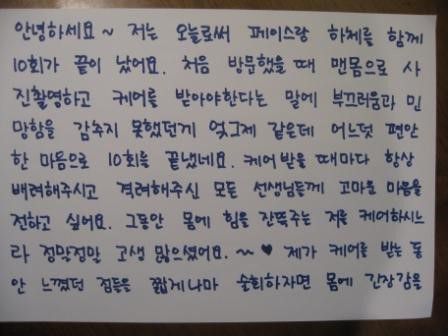 안녕하세요~ 저는 오늘로써 페이스랑 하체를 함께
10회가 끝이 났어요. 처음 방문했을 때 맨몸으로 사
진촬영하고 케어를 받아야한다는 말에 부끄러움과 민
망함을 감추지 못했던게 엊그제 같은데 어느덧 편안
한 마음으로 10회를 끝냈네요. 케어받을 때마다 항상
배려해주시고 격려해주신 모든 선생님들께 고마운 마음을
전하고 싶어요. 그동안 몸에 힘을 잔뜩주는 저를 케어하시느
라 정말정말 고생 많으셨어요. ~ ♥ 제가 케어를 받는 동
안 느꼈던 점들을 짧게나마 술회하자면 몸에 긴장감을